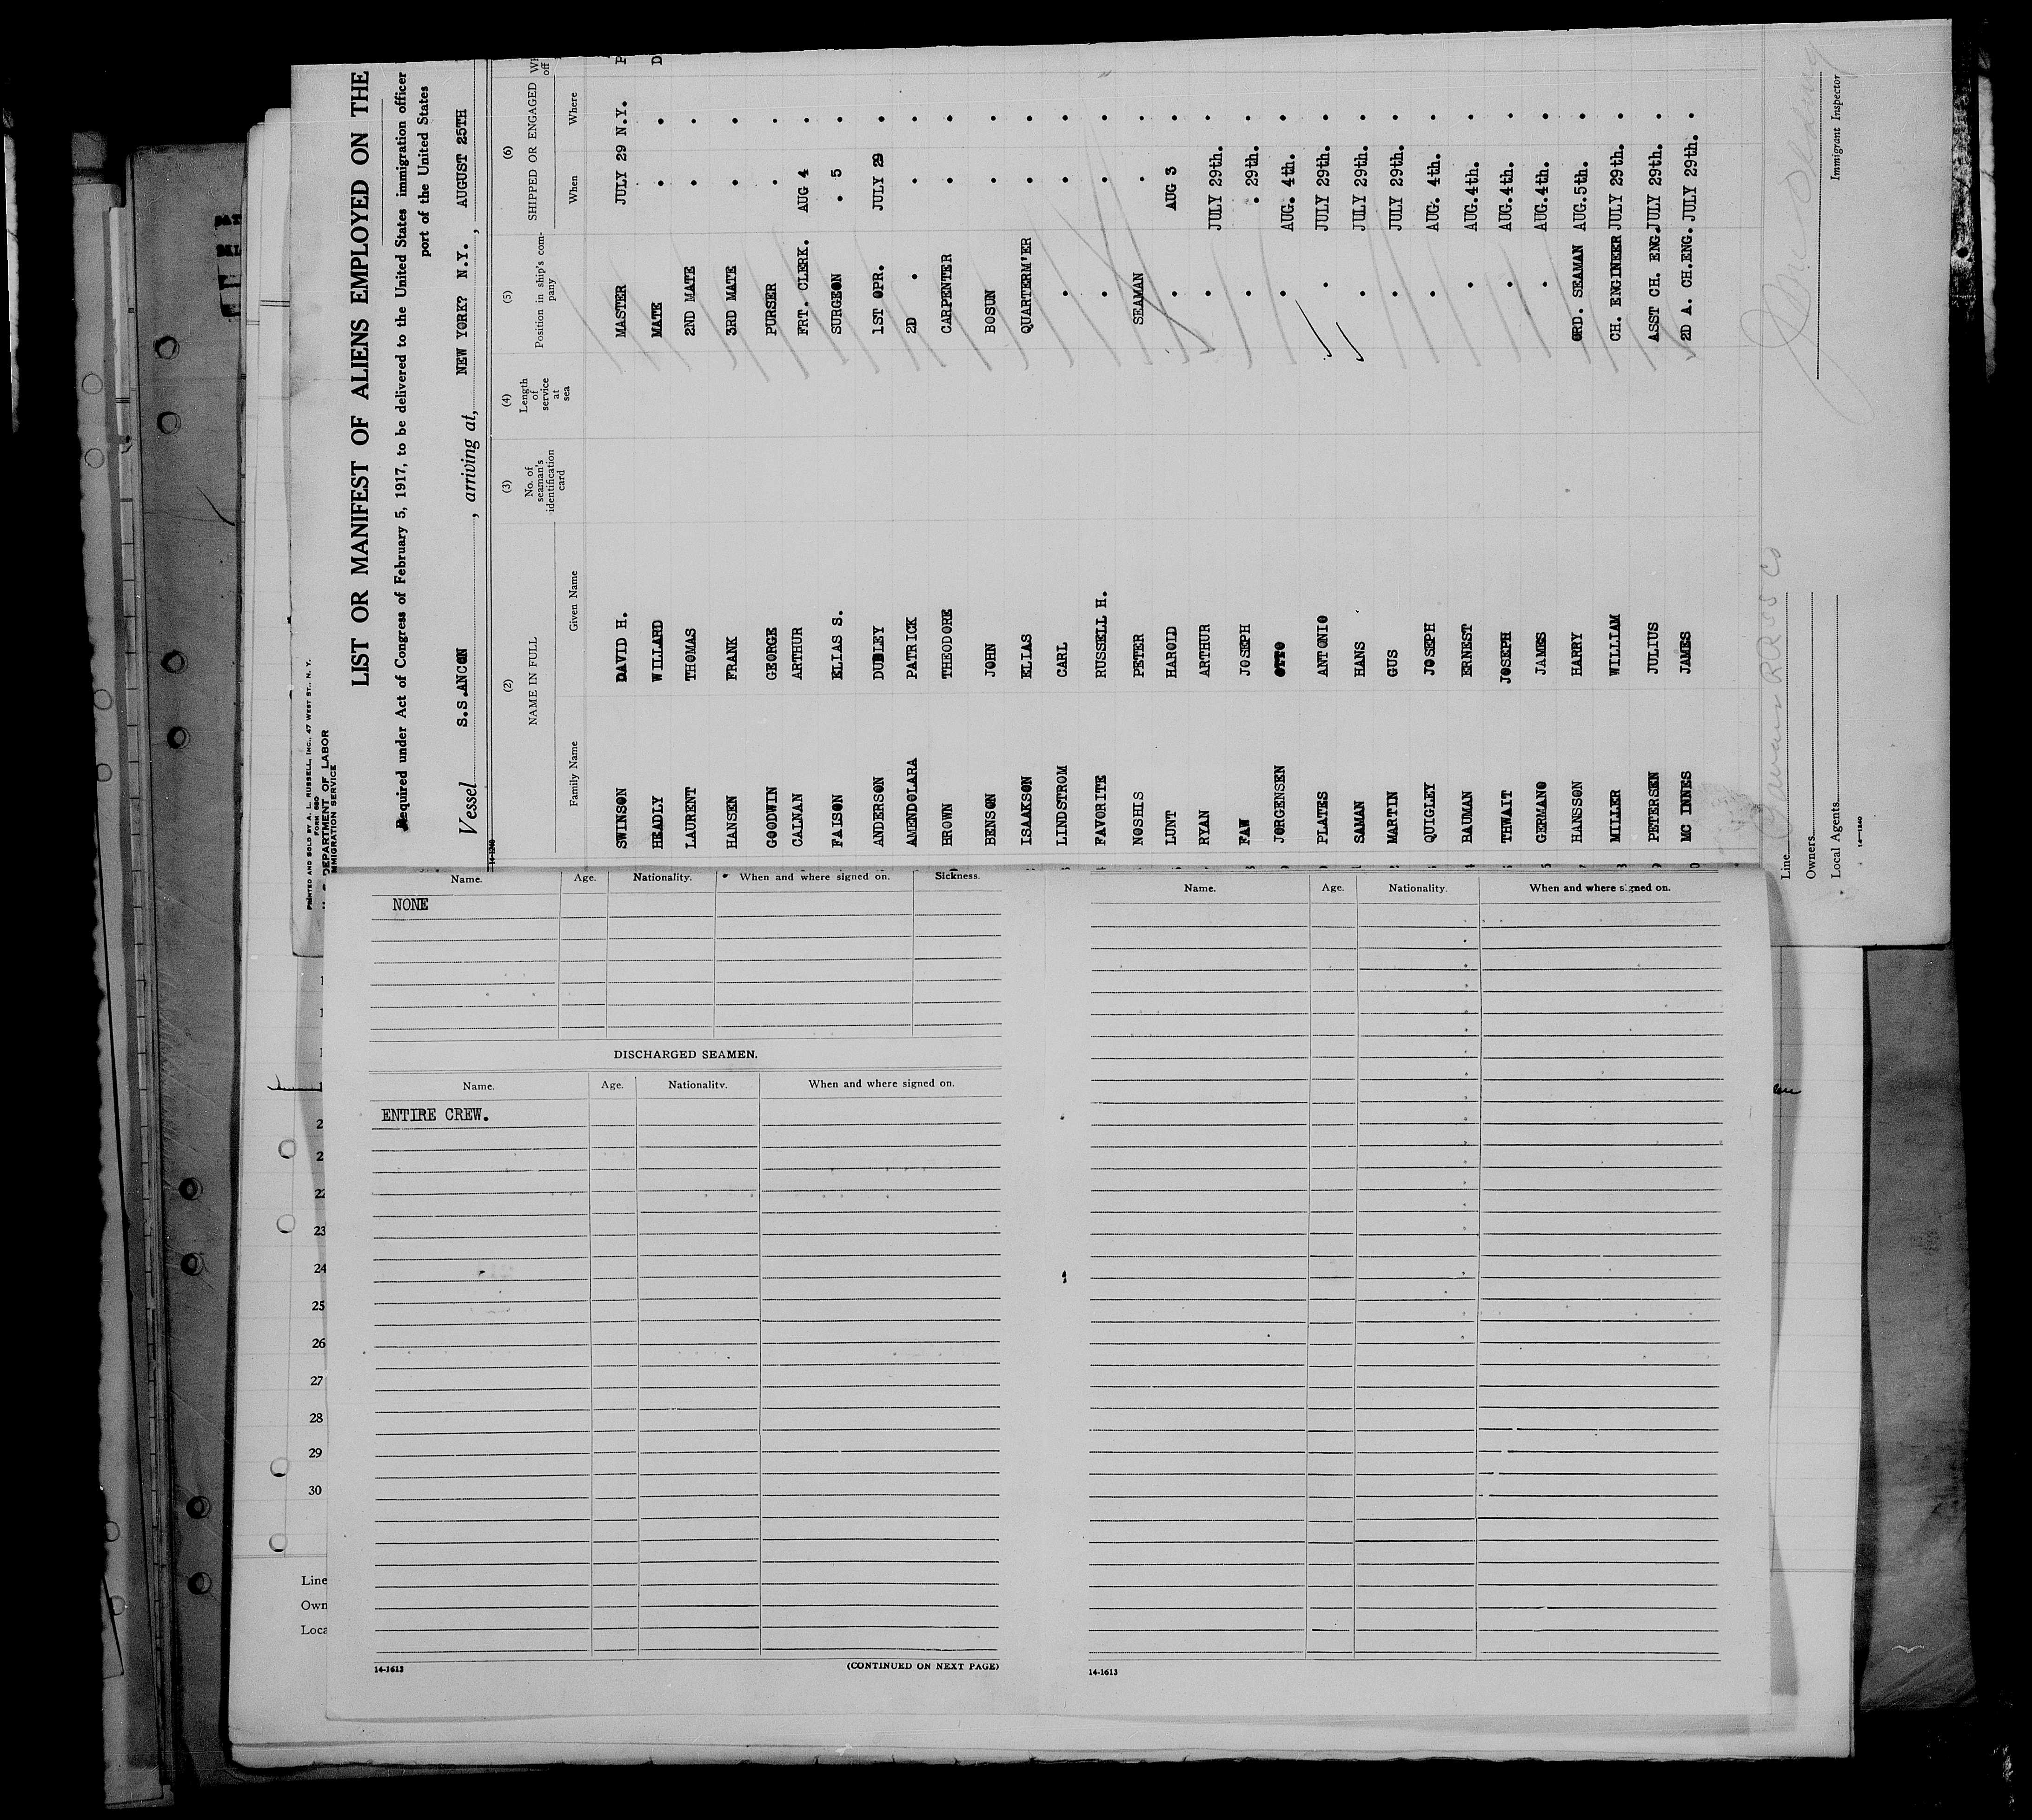 PRINTED AND SOLD BY A. L. RUSSELL, INC., 47 WEST ST., N. Y.
FORM 680
DEPARTMENT OF LABOR
IMMIGRATION SERVICE
LIST OR MANIFEST OF ALIENS EMPLOYED ON THE
Required under Act of Congress of February 5, 1917, to be delivered to the United States immigration officer
port of the United States
Vessel S.S.ANCON, arriving at, NEW YORK? N.Y., AUGUST 25TH
14-1240
(2) (3) (4) (5) (6)
NAME IN FULL No. of seaman's identification card Length of service at sea Position in ship's company SHIPPED OR ENGAGED
Family Name Given Name When Where
SWINSON DAVID H. MASTER JULY 29 N.Y.
HEADLY WILLARD MATE • •
LAURENT THOMAS 2ND MATE • •
HANSEN FRANK 3RD MATE • •
GOODWIN GEORGE PURSER • •
CALNAN ARTHUR FRT. CLERK. AUG 4 •
FAISON ELIAS S. SURGEON • 5 •
ANDERSON DUDLEY 1ST OPR. JULY 29 •
AMENDOLARA PATRICK 2D • • •
BROWN THEODORE CARPENTER • •
BENSON JOHN BOSUN • •
ISAAKSON ELIAS QUARTERM'ER • •
LINDSTROM CARL • • •
FAVORITE RUSSELL H. • • •
NOSHIS PETER SEAMAN • •
LUNT HAROLD • AUG 3 •
RYAN ARTHUR • JULY 29th. •
FAW JOSEPH • • 29th. •
JORGENSEN OTTO • AUG. 4th. •
PLATES ANTONIO • JULY 29th. •
SAMAN HANS • JULY 29th. •
MARTIN GUS • JULY 29th. •
QUIGLEY JOSEPH • AUG. 4th. •
BAUMAN ERNEST • AUG.4th. •
THWAIT JOSEPH • AUG.4th. •
GERMANO JAMES • AUG.4th. •
HANSSON HARRY ORD. SEAMAN AUG.5th. •
MILLER WILLIAM CH. ENGINEER JULY 29th. •
PETERSEN JULIUS ASST CH. ENG. JULY 29th. •
MC INNES JAMES 2D A. CH.ENG. JULY 29th. •
Line Panama RR SS Co
Owners
Local Agents
14-1240
Immigrant Inspector
Name. Age. Nationality. When and where signed on. Sickness.
NONE
DISCHARGED SEAMEN.
Name. Age. Nationality. When and where signed on.
ENTIRE CREW.
14-1613 (CONTINUED ON NEXT PAGE)
Name. Age. Nationality. When and where signed on.
14-1613
22
23
24
25
26
27
28
29
30
Line
Own
Loca